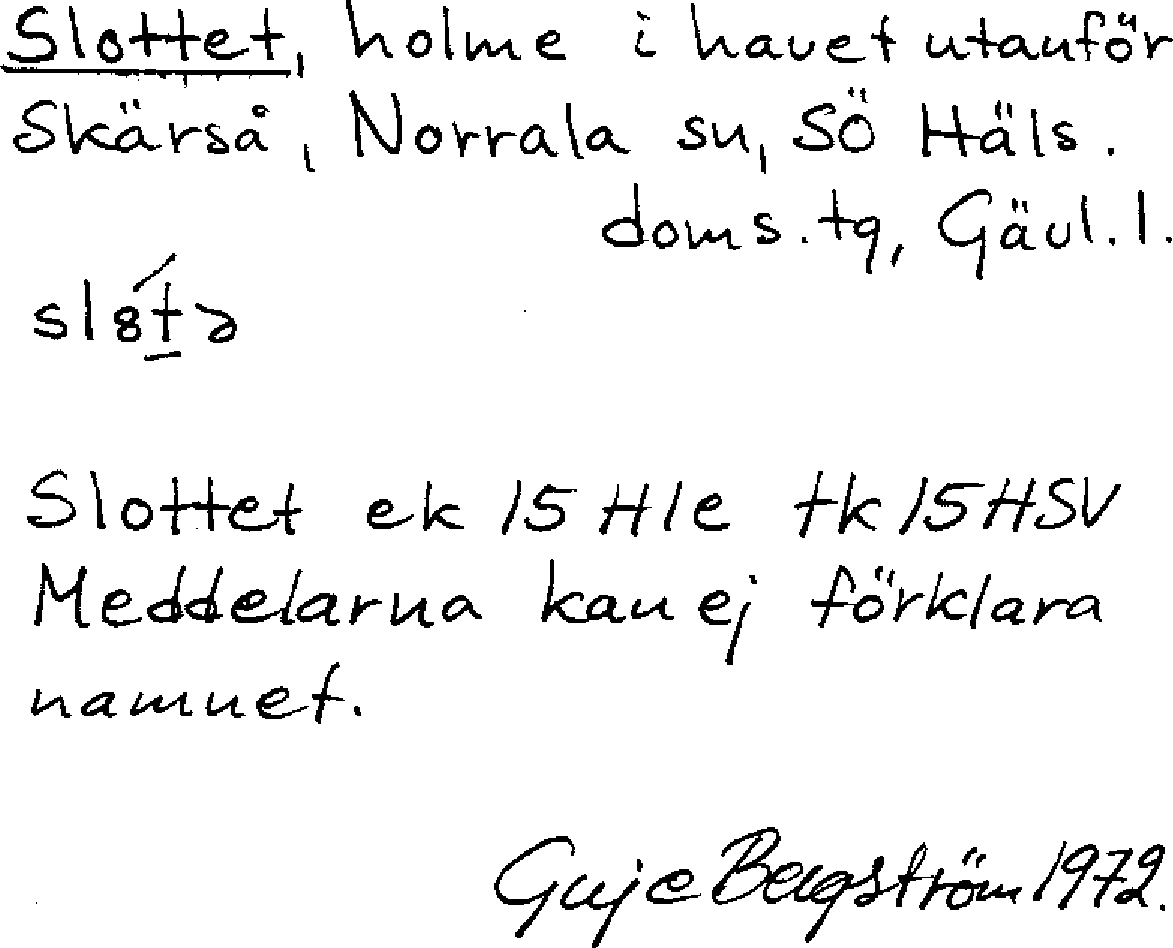 Slottet, holme i havet utanför
Skärså, Norrala sn, SÖ Häls.
doms.tg, Gävl.l.
Slottet ek 15 H1e tk 15HSV
Meddelarna kan ej förklara
namnet.
Bergström 1972.